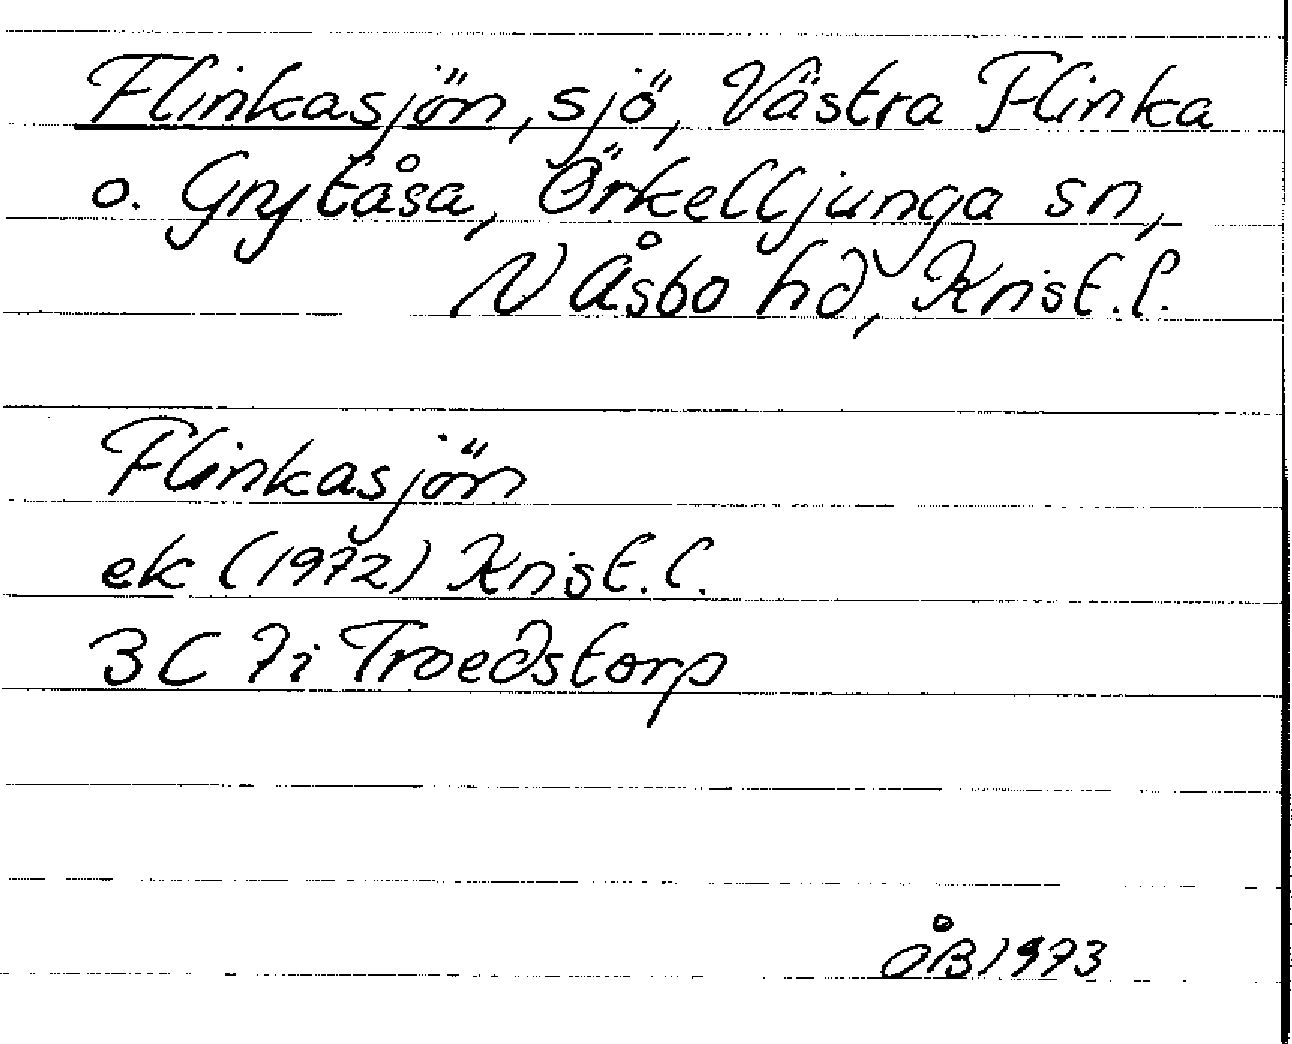 Flinkasjön, sjö, Västra Flinka
o. Grytåsa, Örkelljunga sn,
N Åsbo hd, Krist.l.
Flinkasjön
ek (1972) Krist.l.
3C 7i Troedstorp
ÅB 1973